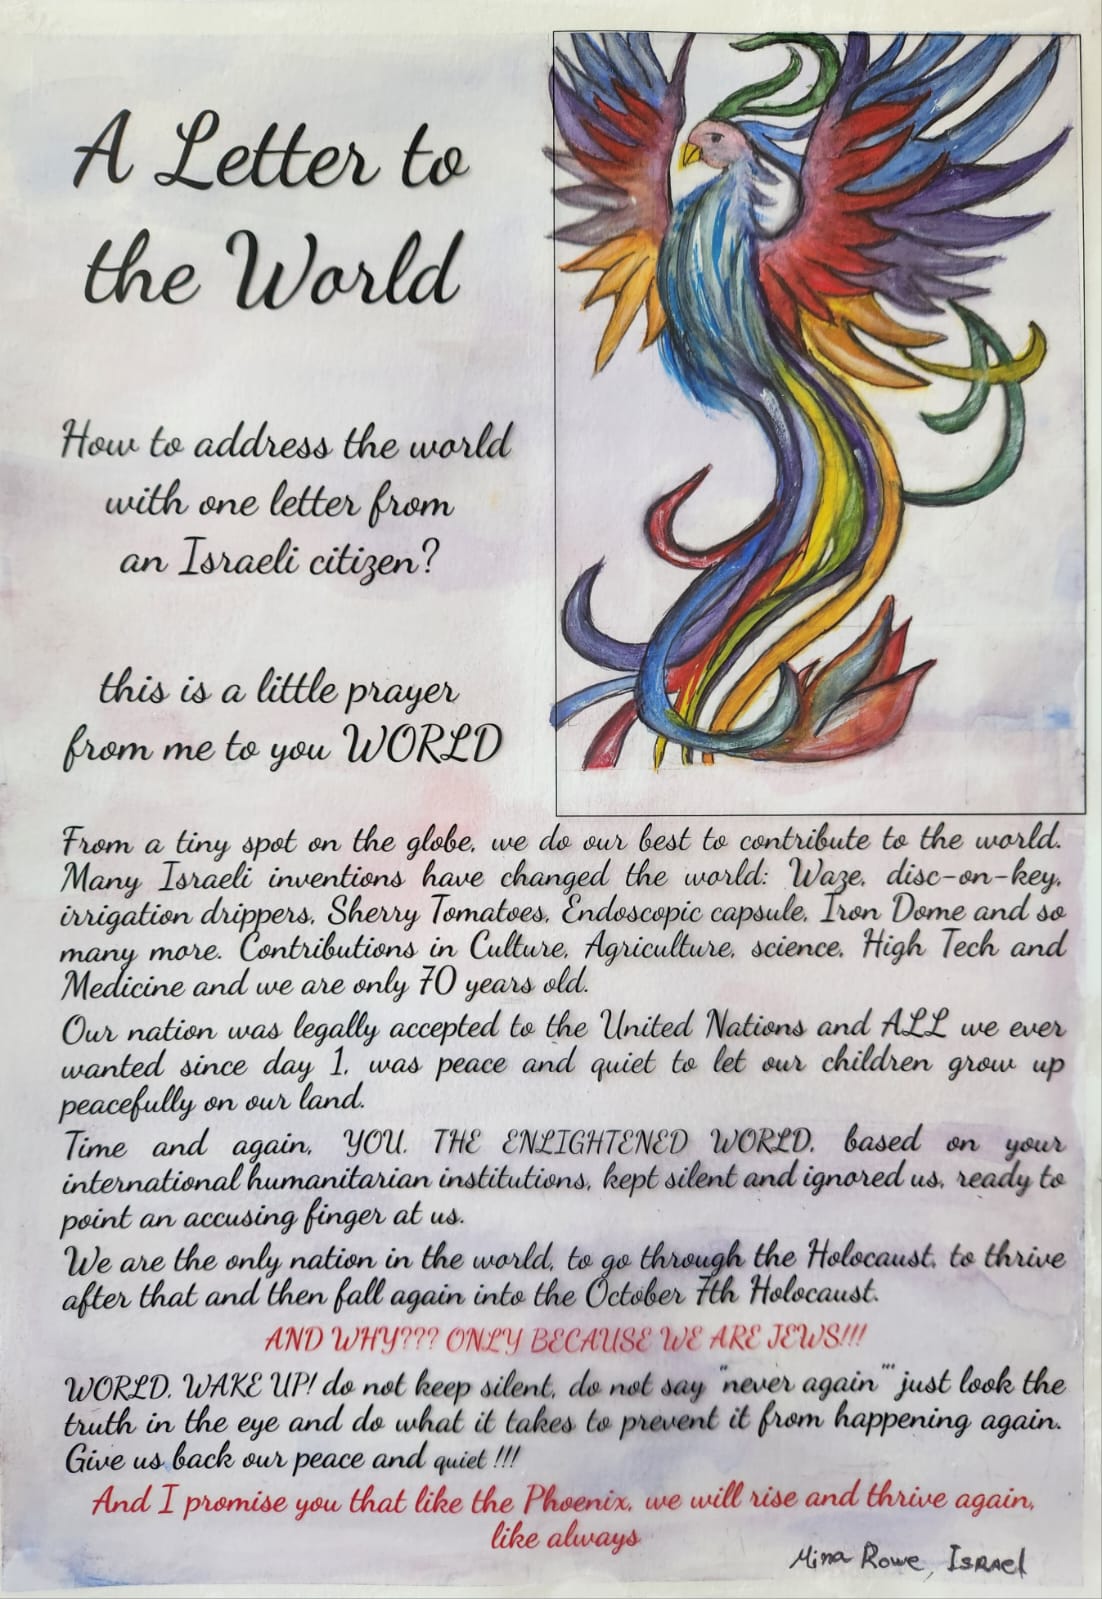 A Letter to
the World
How to address the world
with one letter from
an Israeli citizen?
this is a little prayer
from me to you WORLD
From a tiny spot on the globe, we do our best to contribute to the world.
Many Israeli inventions have changed the world: Waze, disc-on-key,
irrigation drippers, Sherry Tomatoes, Endoscopic capsule, Iron Dome and so
many more. Contributions in Culture, Agriculture, science, High Tech and
Medicine and we are only 70 years old.
Our nation was legally accepted to the United Nations and ALL we ever
wanted since day 1, was peace and quiet to let our children grow up
peacefully on our land.
Time and again, YOU, THE ENLIGHTENED WORLD, based on your
international humanitarian institutions, kept silent and ignored us, ready to
point an accusing finger at us.
We are the only nation in the world, to go through the Holocaust, to thrive
after that and then fall again into the October 7th Holocaust.
AND WHY??? ONLY BECAUSE WE ARE JEWS!!!
WORLD, WAKE UP! do not keep silent, do not say "never again"' just look the
truth in the eye and do what it takes to prevent it from happening again.
Give us back our peace and quiet !!!
And I promise you that like the Phoenix, we will rise and thrive again,
like always
Mina Rowe, ISRAEl